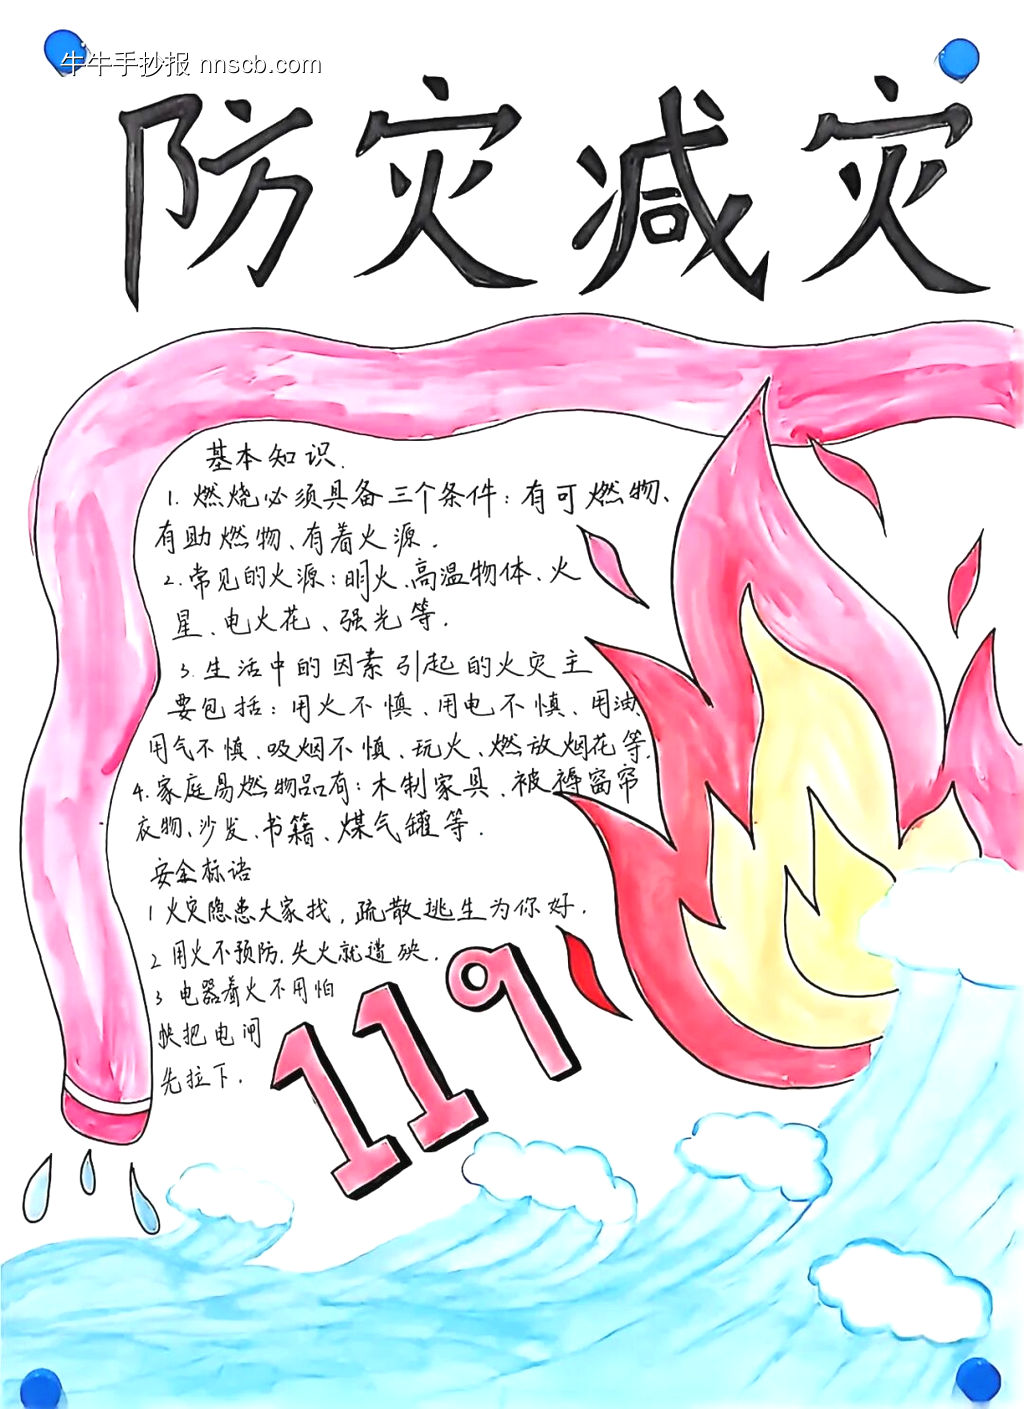 牛牛手抄报 nnscb.com
防灾减灾
基本知识.
1. 燃烧必须具备三个条件：有可燃物、
有助燃物、有着火源.
2. 常见的火源：明火、高温物体、火
星、电火花、强光等.
3. 生活中的因素引起的火灾主
要包括：用火不慎、用电不慎、用油、
用气不慎、吸烟不慎、玩火、燃放烟花等.
4. 家庭易燃物品有：木制家具、被褥窗帘
衣物、沙发、书籍、煤气罐等.
安全标语
1 火灾隐患大家找，疏散逃生为你好.
2 用火不预防，失火就遭殃.
3 电器着火不用怕
快把电闸
先拉下.
119